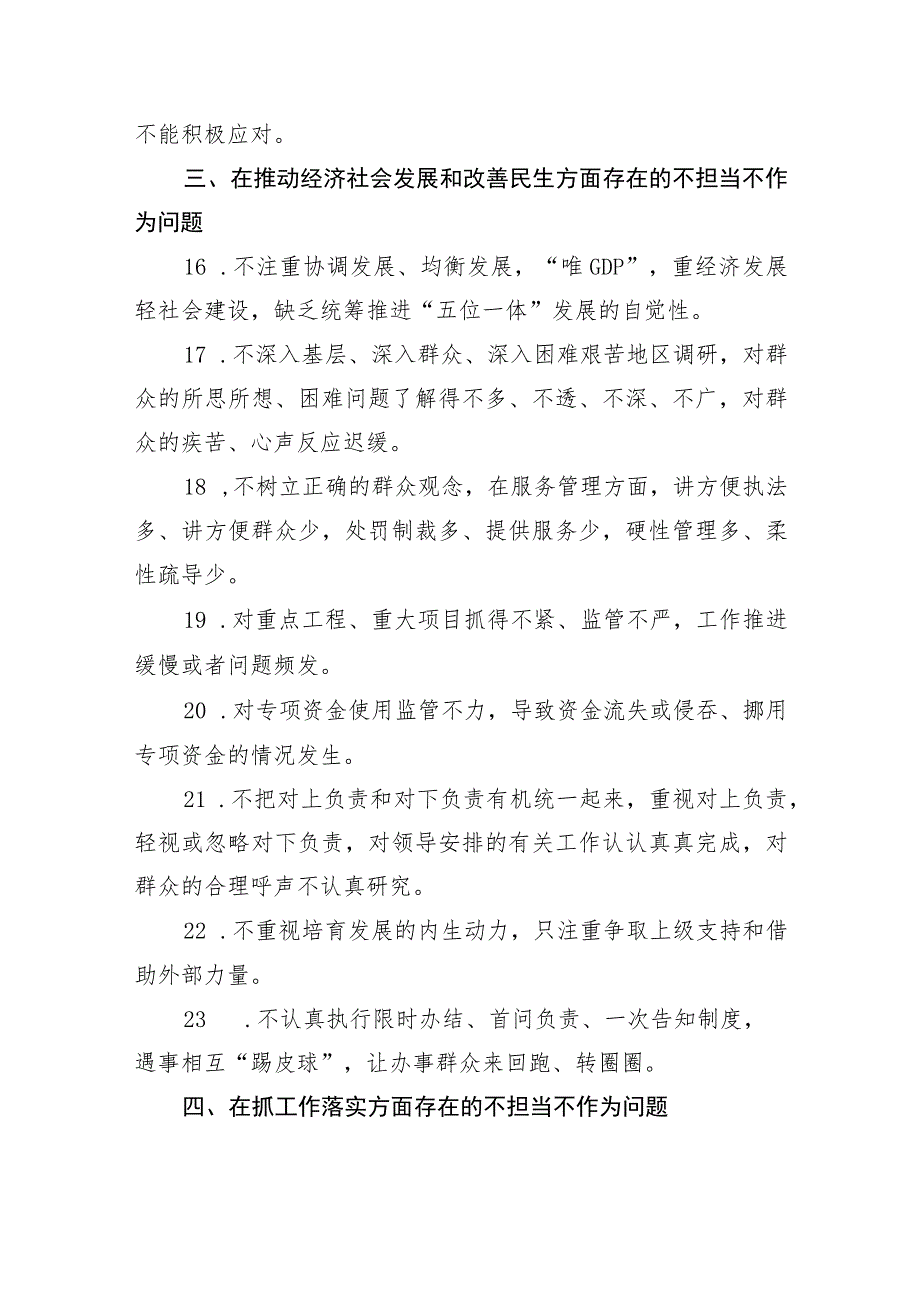 不能积极应对。
三、在推动经济社会发展和改善民生方面存在的不担当不作
为问题
16 .不注重协调发展、均衡发展，“唯 GDP”，重经济发展
轻社会建设，缺乏统筹推进“五位一体”发展的自觉性。
17 .不深入基层、深入群众、深入困难艰苦地区调研，对群
众的所思所想、困难问题了解得不多、不透、不深、不广，对群
众的疾苦、心声反应迟缓。
18 ,不树立正确的群众观念，在服务管理方面，讲方便执法
多、讲方便群众少，处罚制裁多、提供服务少，硬性管理多、柔
性疏导少。
19 .对重点工程、重大项目抓得不紧、监管不严，工作推进
缓慢或者问题频发。
20 .对专项资金使用监管不力，导致资金流失或侵吞、挪用
专项资金的情况发生。
21 .不把对上负责和对下负责有机统一起来，重视对上负责，
轻视或忽略对下负责，对领导安排的有关工作认认真真完成，对
群众的合理呼声不认真研究。
22 .不重视培育发展的内生动力，只注重争取上级支持和借
助外部力量。
23 .不认真执行限时办结、首问负责、一次告知制度，
遇事相互“踢皮球”，让办事群众来回跑、转圈圈。
四、在抓工作落实方面存在的不担当不作为问题